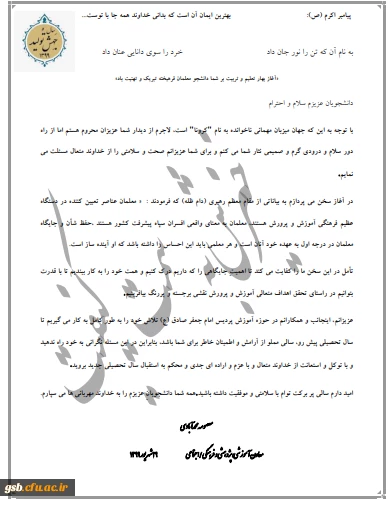 پیامبر اکرم (ص): بهترین ایمان آن است که بدانی خداوند همه جا با توست...
سال
جهش تولید
۱۳۹۹
به نام آن که تن را نور جان داد خرد را سوی دانایی عنان داد
«آغاز بهار تعلیم و تربیت بر شما دانشجو معلمان فرهیخته تبریک و تهنیت باد»
دانشجویان عزیزم سلام و احترام
با توجه به این که جهان میزبان مهمانی ناخوانده به نام "کرونا" است، لاجرم از دیدار شما عزیزان محروم هستم اما از راه
دور سلام و درودی گرم و صمیمی نثار شما می کنم و برای شما عزیزانم صحت و سلامتی را از خداوند متعال مسئلت می
نمایم.
در آغاز سخن می پردازم به بیاناتی از مقام معظم رهبری (دام ظله) که فرمودند : « معلمان عناصر تعیین کننده در دستگاه
عظیم فرهنگی آموزش و پرورش هستند، معلمان به معنای واقعی افسران سپاه پیشرفت کشور هستند ،حفظ شأن و جایگاه
معلمان در درجه اول به عهده خود آنان است و هر معلمی باید این احساس را داشته باشد که او آینده ساز است.
تأمل در این سخن ما را کفایت می کند تا اهمیت جایگاهی را که داریم درک کنیم و همت خود را به کار ببندیم تا با قدرت
بتوانیم در راستای تحقق اهداف متعالی آموزش و پرورش نقشی برجسته و پررنگ بیافرینیم.
عزیزانم، اینجانب و همکارانم در حوزه آموزش پردیس امام جعفر صادق (ع) تلاش خود را به طور کامل به کار می گیریم تا
سال تحصیلی پیش رو، سالی مملو از آرامش و اطمینان خاطر برای شما باشد، بنابراین در این مسئله نگرانی به خود راه ندهید
و با توکل و استعانت از خداوند متعال و با عزم و اراده ای جدی و محکم به استقبال سال تحصیلی جدید بروید.
امید دارم سالی پر برکت توام با سلامتی و موفقیت داشته باشید،همه شما دانشجویان عزیزم را به خداوند مهربانی ها می سپارم.
معاون آموزشی، پژوهشی و فرهنگی اجتماعی ۲۹ شهریور ۱۳۹۹
gsb.cfu.ac.ir